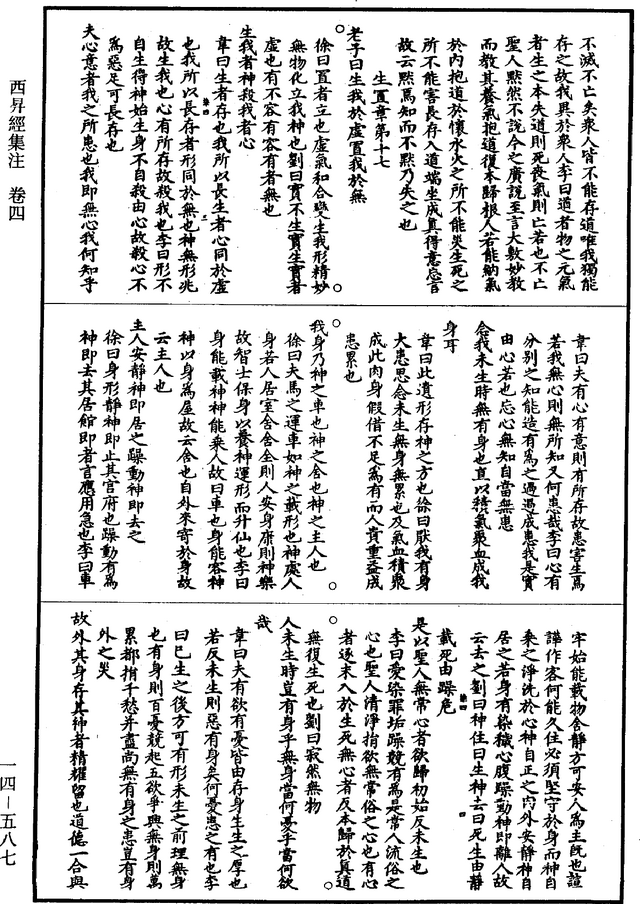 西昇經集注 卷四
一四—五八七
不滅不亡矣衆人皆不能存道唯我獨能
存之故我異於衆人李曰道者物之元氣
者生之本失道則死喪氣則亡若也不亡
聖人黙然不說今之廣說至言大數妙教
而教其養氣抱道復本歸根人若能納氣
於內抱道於懷水火之所不能災生死之
所不能害長存入道端坐成真得意忘言
故云黙焉知而不黙乃失之也
生置章第十七
老子曰生我於虛置我於無
徐曰置者立也虛氣和合變生我形精妙
無物化立我神也劉曰實不生實生實者
虛也有不容有容有者無也
生我者神殺我者心
韋曰生者存也我所以長生者心同於虛
也我所以長存者形同於無也神無形兆
故生我也心有所存故殺我也李曰形不
自生得神始生身不自殺由心故殺心不
為惡足可長存也
夫心意者我之所患也我即無心我何知乎
韋曰夫有心有意則有所存故患害生焉
若我無心則無所知又何患哉李曰心有
分別之知能造有為之過過成患我是實
由心若也忘心無知自當無患
念我未生時無有身也直以積氣聚血成我
身耳
韋曰此遺形存神之方也徐曰猒我有身
大患思念未生無身無累也及氣血積聚
成此肉身假借不足為有而人貴重益成
患累也
我身乃神之車也神之舍也神之主人也
徐曰夫馬之運車如神之載形也神處人
身若人居室舍舍全則人安身康則神樂
故智士保身以養神運形而升仙也李曰
身能載神神能乗人故曰車也身能容神
神以身為屋故云舍也自外來寄於身故
云主人也
主人安靜神即居之躁動神即去之
徐曰身形靜神即止其官府也躁動有為
神即去其居館即者言應用急也李曰車
牢始能載物舍靜方可安人為主旣也諠
譁作客何能久住必須堅守於身而神自
乗之淨洗於心神自正之內外安靜神自
居之若身有染穢心腹躁動神即離人故
云去之劉曰神住曰生神去曰死生由靜
載死由躁危
是以聖人無常心者欲歸初始反未生也
李曰愛染罪垢躁競有為是常人流俗之
心也聖人清淨捐欲無常俗之心也有心
者逐末入於生死無心者反本歸於真道
無復生死也劉曰寂然無物
人未生時豈有身乎無身當何憂乎當何欲
哉
韋曰夫有欲有憂皆由存身生生之厚也
若反未生則惡有身矣何憂患之有也李
曰已生之後方可有形未生之前理無身
也有身則百憂競起五欲爭興無身則萬
累都捐千愁并盡尚無有身之患豈有身
外之災
故外其身存其神者精耀留也道德一合與